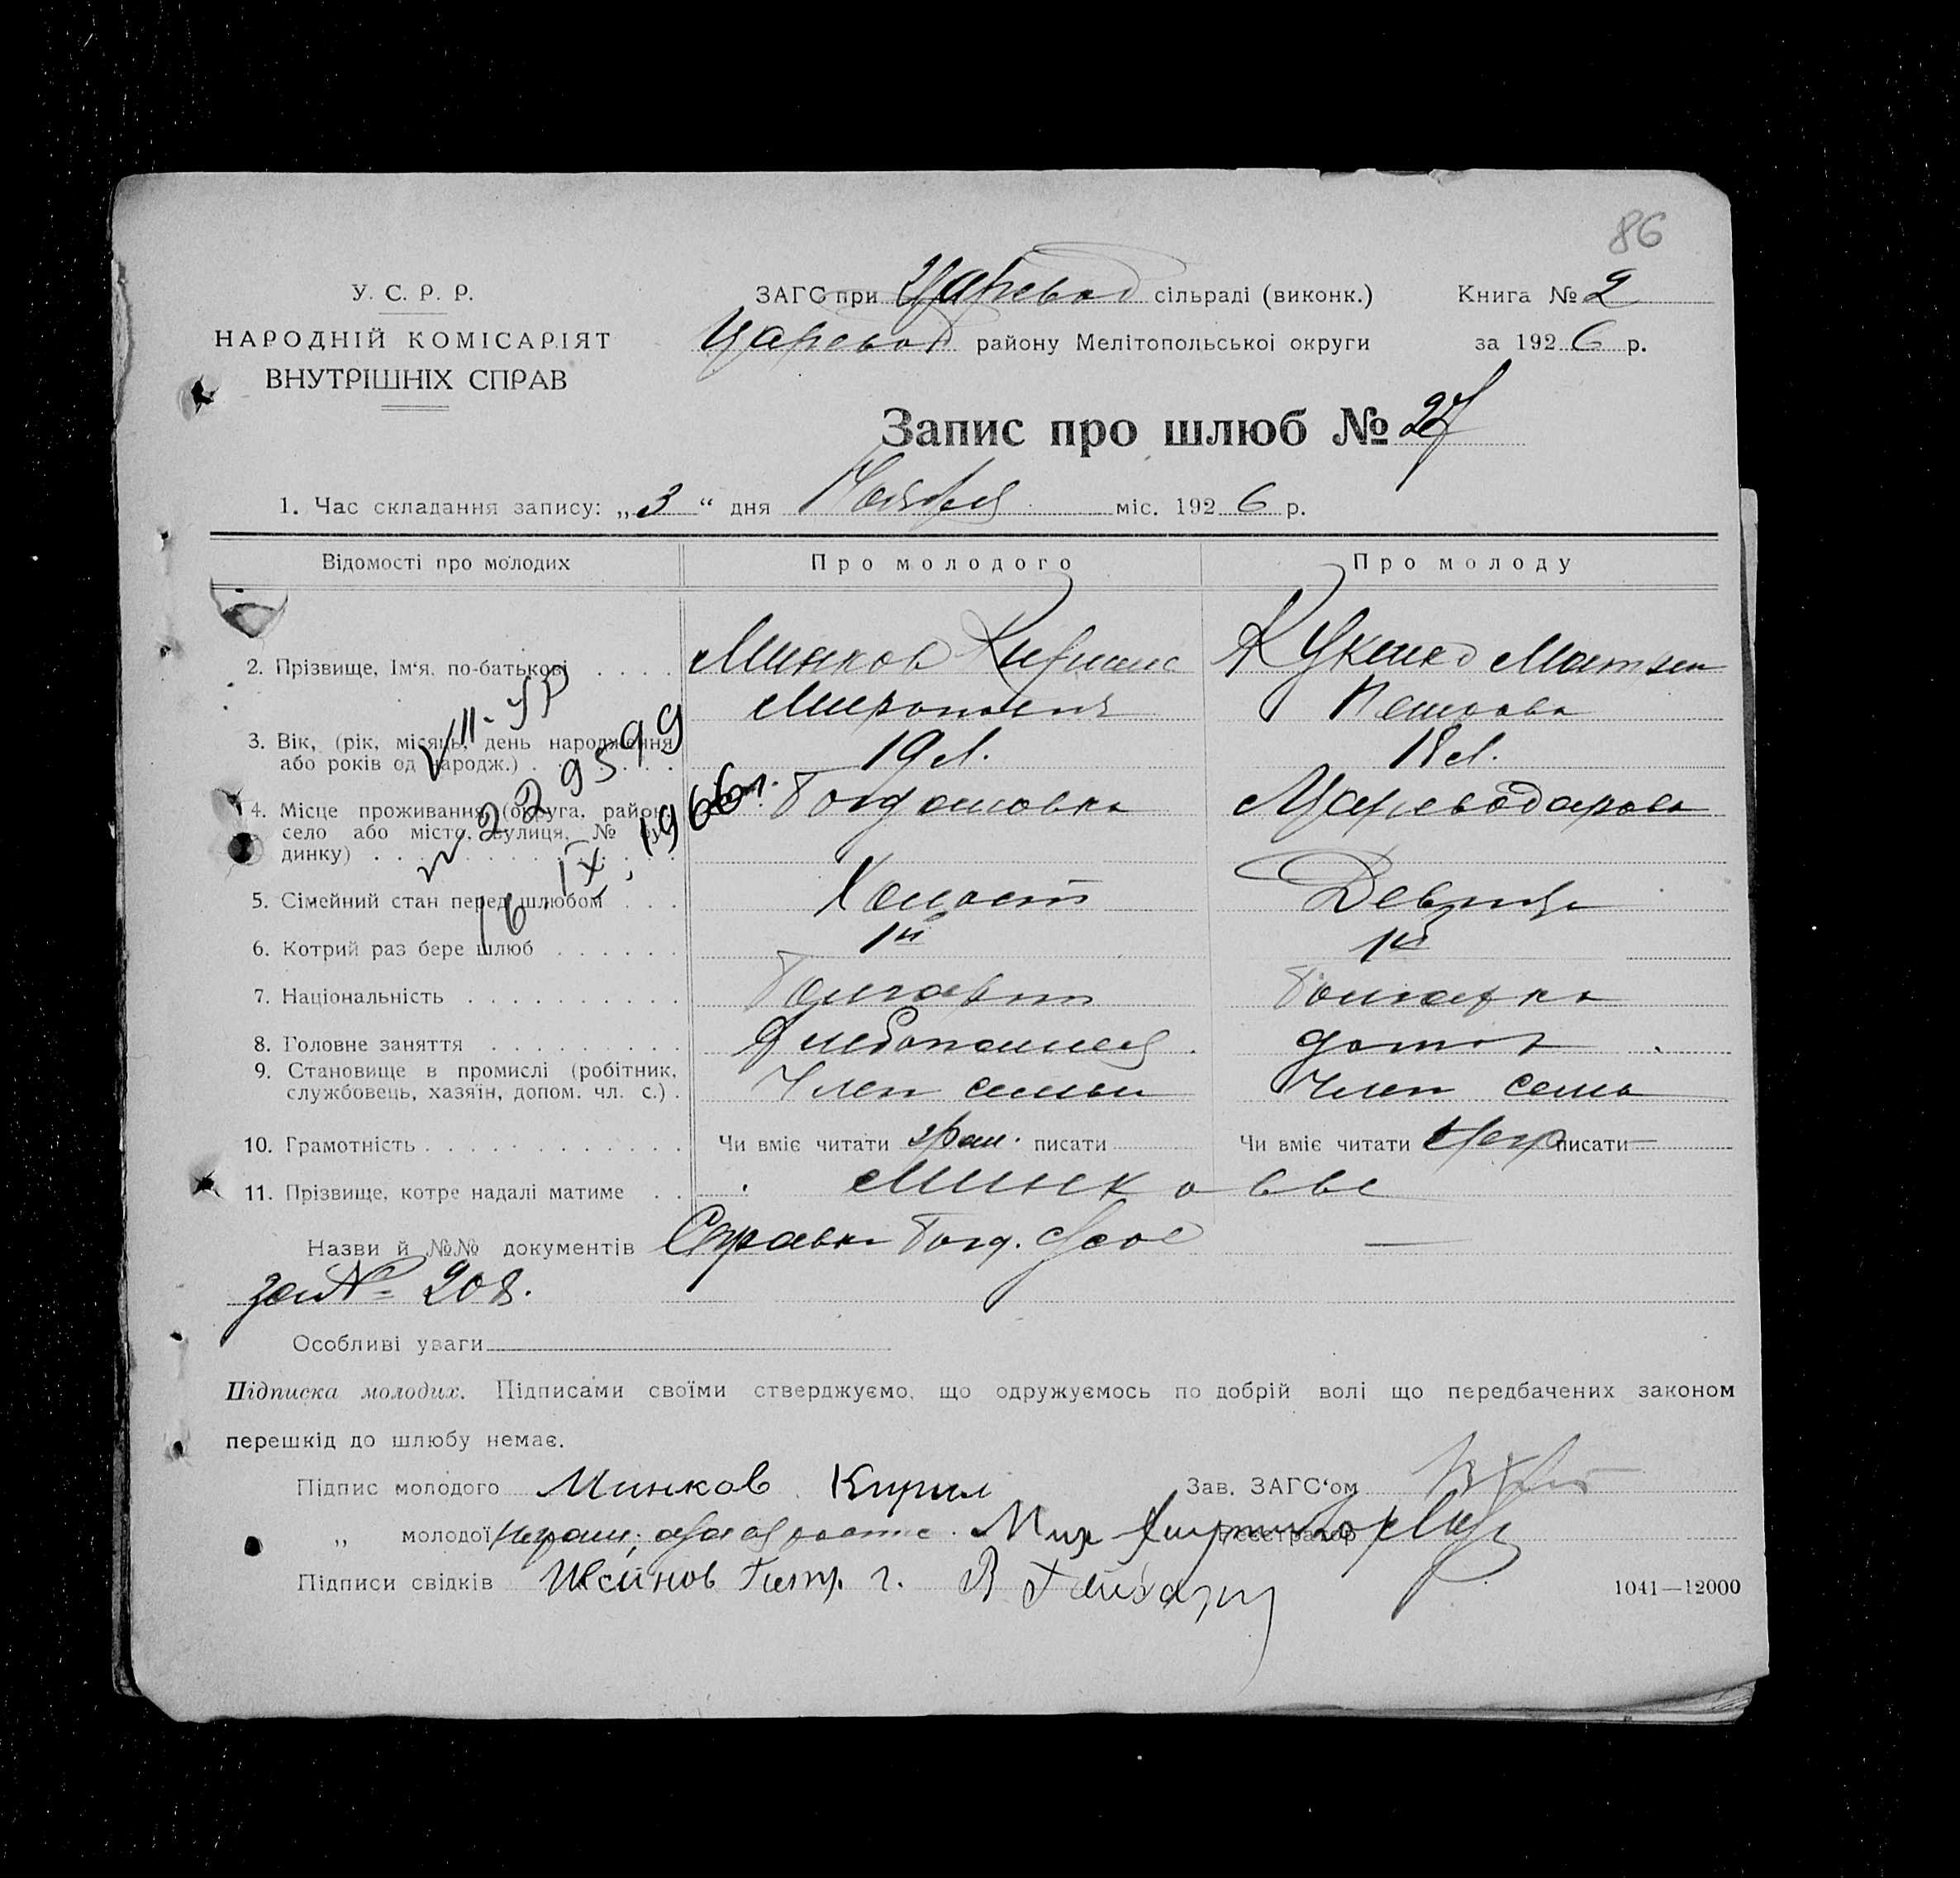 86
У. С. Р. Р.
НАРОДНІЙ КОМІСАРІЯТ
ВНУТРІШНІХ СПРАВ
ЗАГС при Царевод сільраді (виконк.)
Царевод району Мелітопольської округи
Книга № 2
за 1926 р.
Запис про шлюб № 27
1. Час складання запису: „3“ дня Ноября міс. 1926 р.
Відомості про молодих Про молодого Про молоду
2. Прізвище, Ім‘я, по-батькові . . . . Минков Кирилл
Миронович
3. Вік, (рік, місяць, день народження 19 л. 18 л.
або років од народж.) . . . . . .
4. Місце проживання (округа, район, Богдановка Цареводарова
село або місто, вулиця, № бу-
динку) . . . . . . . . . . . . .
5. Сімейний стан перед шлюбом . . . Холост Девица
6. Котрий раз бере шлюб . . . . . . 1й 1й
7. Національність . . . . . . . . . . Болгарин Болгарка
8. Головне заняття . . . . . . . . . Хлебопашец домов.
9. Становище в промислі (робітник, Член семьи Член семь
службовець, хазяїн, допом. чл. с.) .
10. Грамотність . . . . . . . . . . . . Чи вміє читати грам. писати Чи вміє читати писати —
11. Прізвище, котре надалі матиме . . Минковы
Назви й №№ документів Справка Богд. —
за № 208.
Особливі уваги
Підписка молодих. Підписами своїми стверджуємо, що одружуємось по добрій волі що передбачених законом
перешкід до шлюбу немає.
Підпис молодого Минков Кирил Зав. ЗАГС‘ом
„ молодої Реєстратор
Підписи свідків
1041—12000
V II-УР
№ 229599
16 IX 1966 г.